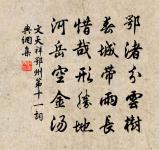 鄂渚分雲樹
春城帶雨長
惜哉形勝地
河岳空金湯
文天祥鄂州第十一詞
典網集